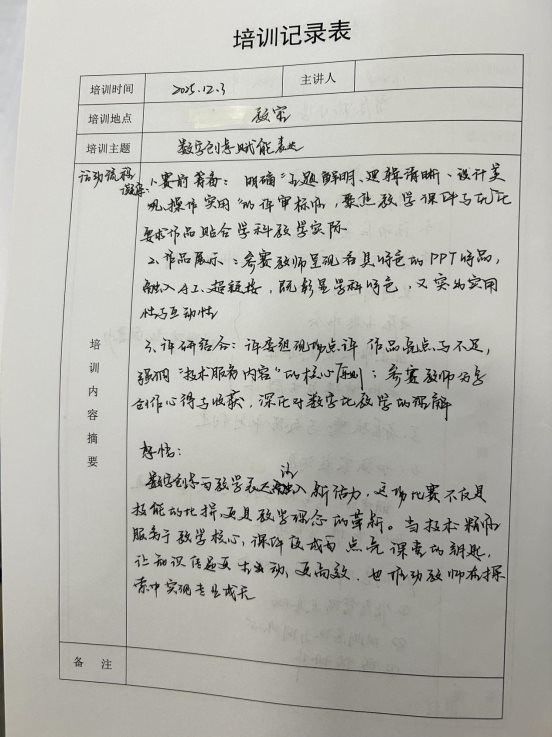 培训记录表
培训时间 2025.12.3 主讲人
培训地点 教室
培训主题 数字创享赋能表达
活动流程
1.赛前筹备：明确"主题鲜明、逻辑清晰、设计美
观、操作实用"的评审标准，聚焦教学课件与
要求作品贴合学科教学实际
2.作品展示：参赛教师呈现各具特色的PPT作品，
融入AI、超链接，既彰显学科特色，又突出实用
性与互动性
3.评研结合：评委组现场点评作品亮点与不足，
强调"技术服务内容"的核心原则；参赛教师分享
创作心得与收获，深化对数字化教学的理解
培训内容摘要
感悟：
数字创享为教学表达注入新活力，这场比赛不仅是
技能的比拼更是教学理念的革新。当技术精准
服务于教学核心，课件便成为点亮课堂的钥匙，
让知识传递更生动、更高效，也推动教师在探
索中实现专业成长
备注